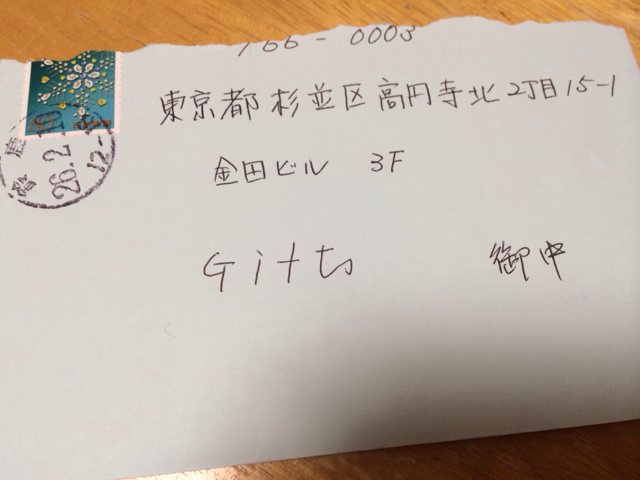 166-0003
東京都杉並区高円寺北2丁目15-1
金田ビル 3F
Gifts 御中
26.2.
12-